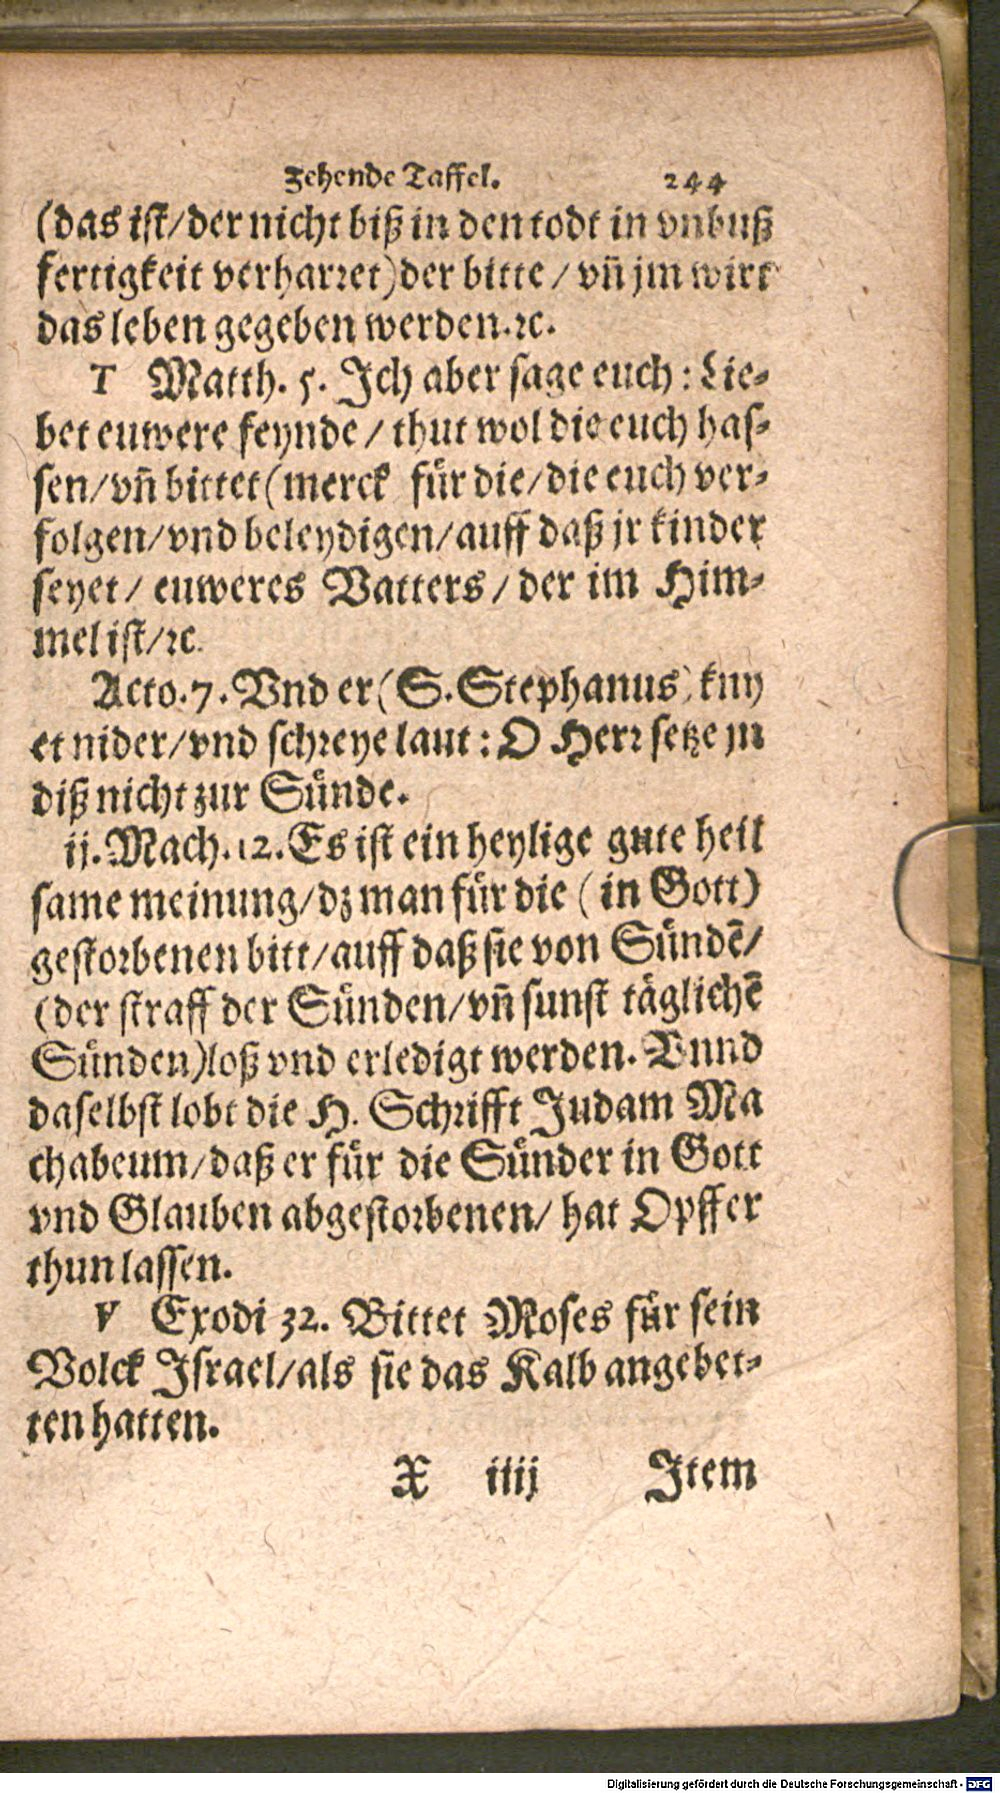 Zehende Taffel. 244
(das ist/der nicht biß in den todt in vnbuß
fertigkeit verharret)der bitte/vñ jm wirt
das leben gegeben werden.ꝛc.
T Matth. 5. Ich aber sage euch: Lie-
bet euwere feynde/thut wol die euch has-
sen/vñ bittet(merck für die/die euch ver-
folgen/vnd beleydigen/auff daß jr kinder
seyet/ euweres Vatters/der im Him-
mel ist/ꝛc.
Acto.7.Vnd er(S.Stephanus) kny
et nider/vnd schreye laut: O Herr setze jn
diß nicht zur Sünde.
ij.Mach.12.Es ist ein heylige gute heil
same meinung/dz man für die (in Gott)
gestorbenen bitt/auff daß sie von Sündē/
(der straff der Sünden/vñ sunst täglichē
Sünden)loß vnd erledigt werden. Vnnd
daselbst lobt die H. Schrifft Judam Ma
chabeum/daß er für die Sünder in Gott
vnd Glauben abgestorbenen/ hat Opffer
thun lassen.
V Exodi 32. Bittet Moses für sein
Volck Israel/als sie das Kalb angebet-
ten hatten.
X iiij Item
Digitalisierung gefördert durch die Deutsche Forschungsgemeinschaft - DFG